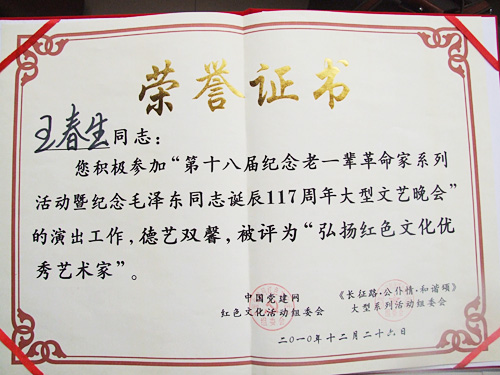 荣誉证书
王春生同志：
您积极参加“第十八届纪念老一辈革命家系列
活动暨纪念毛泽东同志诞辰117周年大型文艺晚会”
的演出工作，德艺双馨，被评为“弘扬红色文化优
秀艺术家”。
中国党建网
红色文化活动组委会
《长征路·公仆情·和谐颂》
大型系列活动组委会
二〇一〇年十二月二十六日